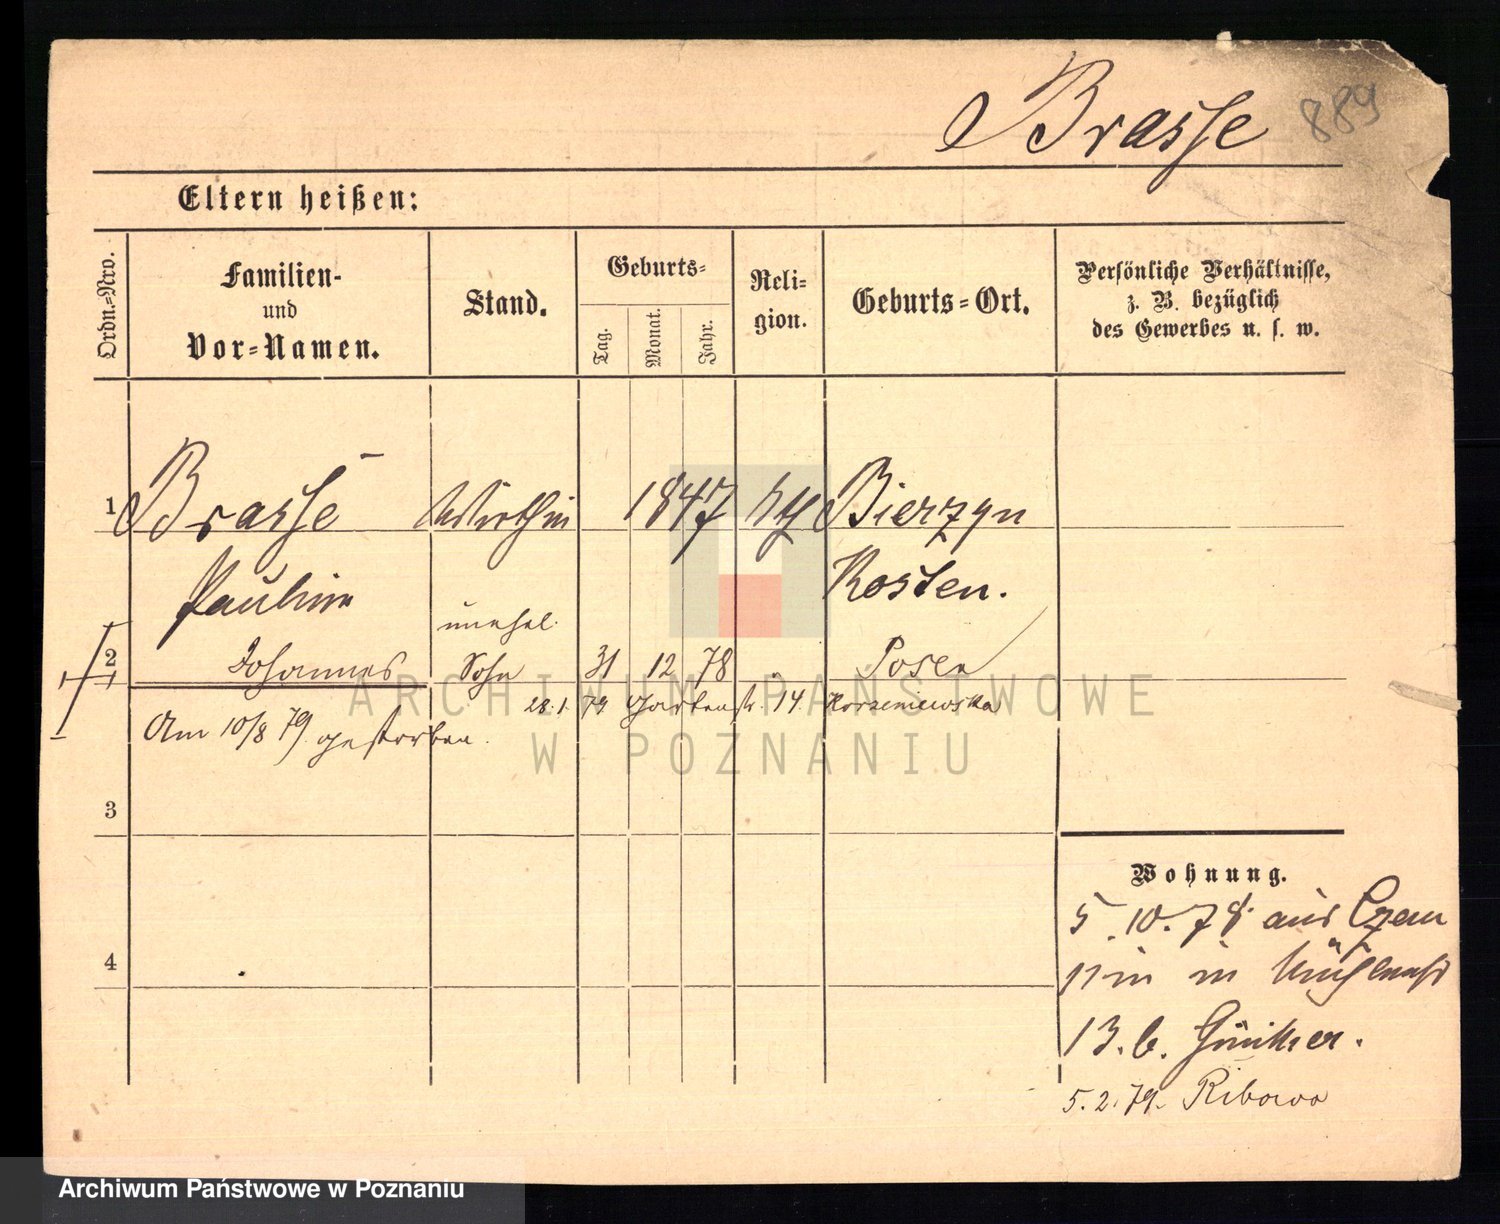 Brasse 889
Eltern heißen:
Ordn.-Nro.
Familien-
und
Vor-Namen.
Stand.
Geburts-
Tag.
Monat.
Jahr.
Reli-
gion.
Geburts-Ort.
Persönliche Verhältnisse,
z. B. bezüglich
des Gewerbes u. s. w.
1 Brasse Wirthin 1847 Bierzyn
Paulina Kosten.
unehel.
2 Johannes Sohn 31 12 78 Posen
28.1. 79 Gartenstr. 14. Korzeniewska
Am 10/8 79. gestorben.
3
4
Wohnung.
5. 10. 78. aus Czem
pin in Mühlenstr
13. b. Günther.
5. 2. 79. Ribowo
ARCHIWUM PAŃSTWOWE
W POZNANIU
Archiwum Państwowe w Poznaniu